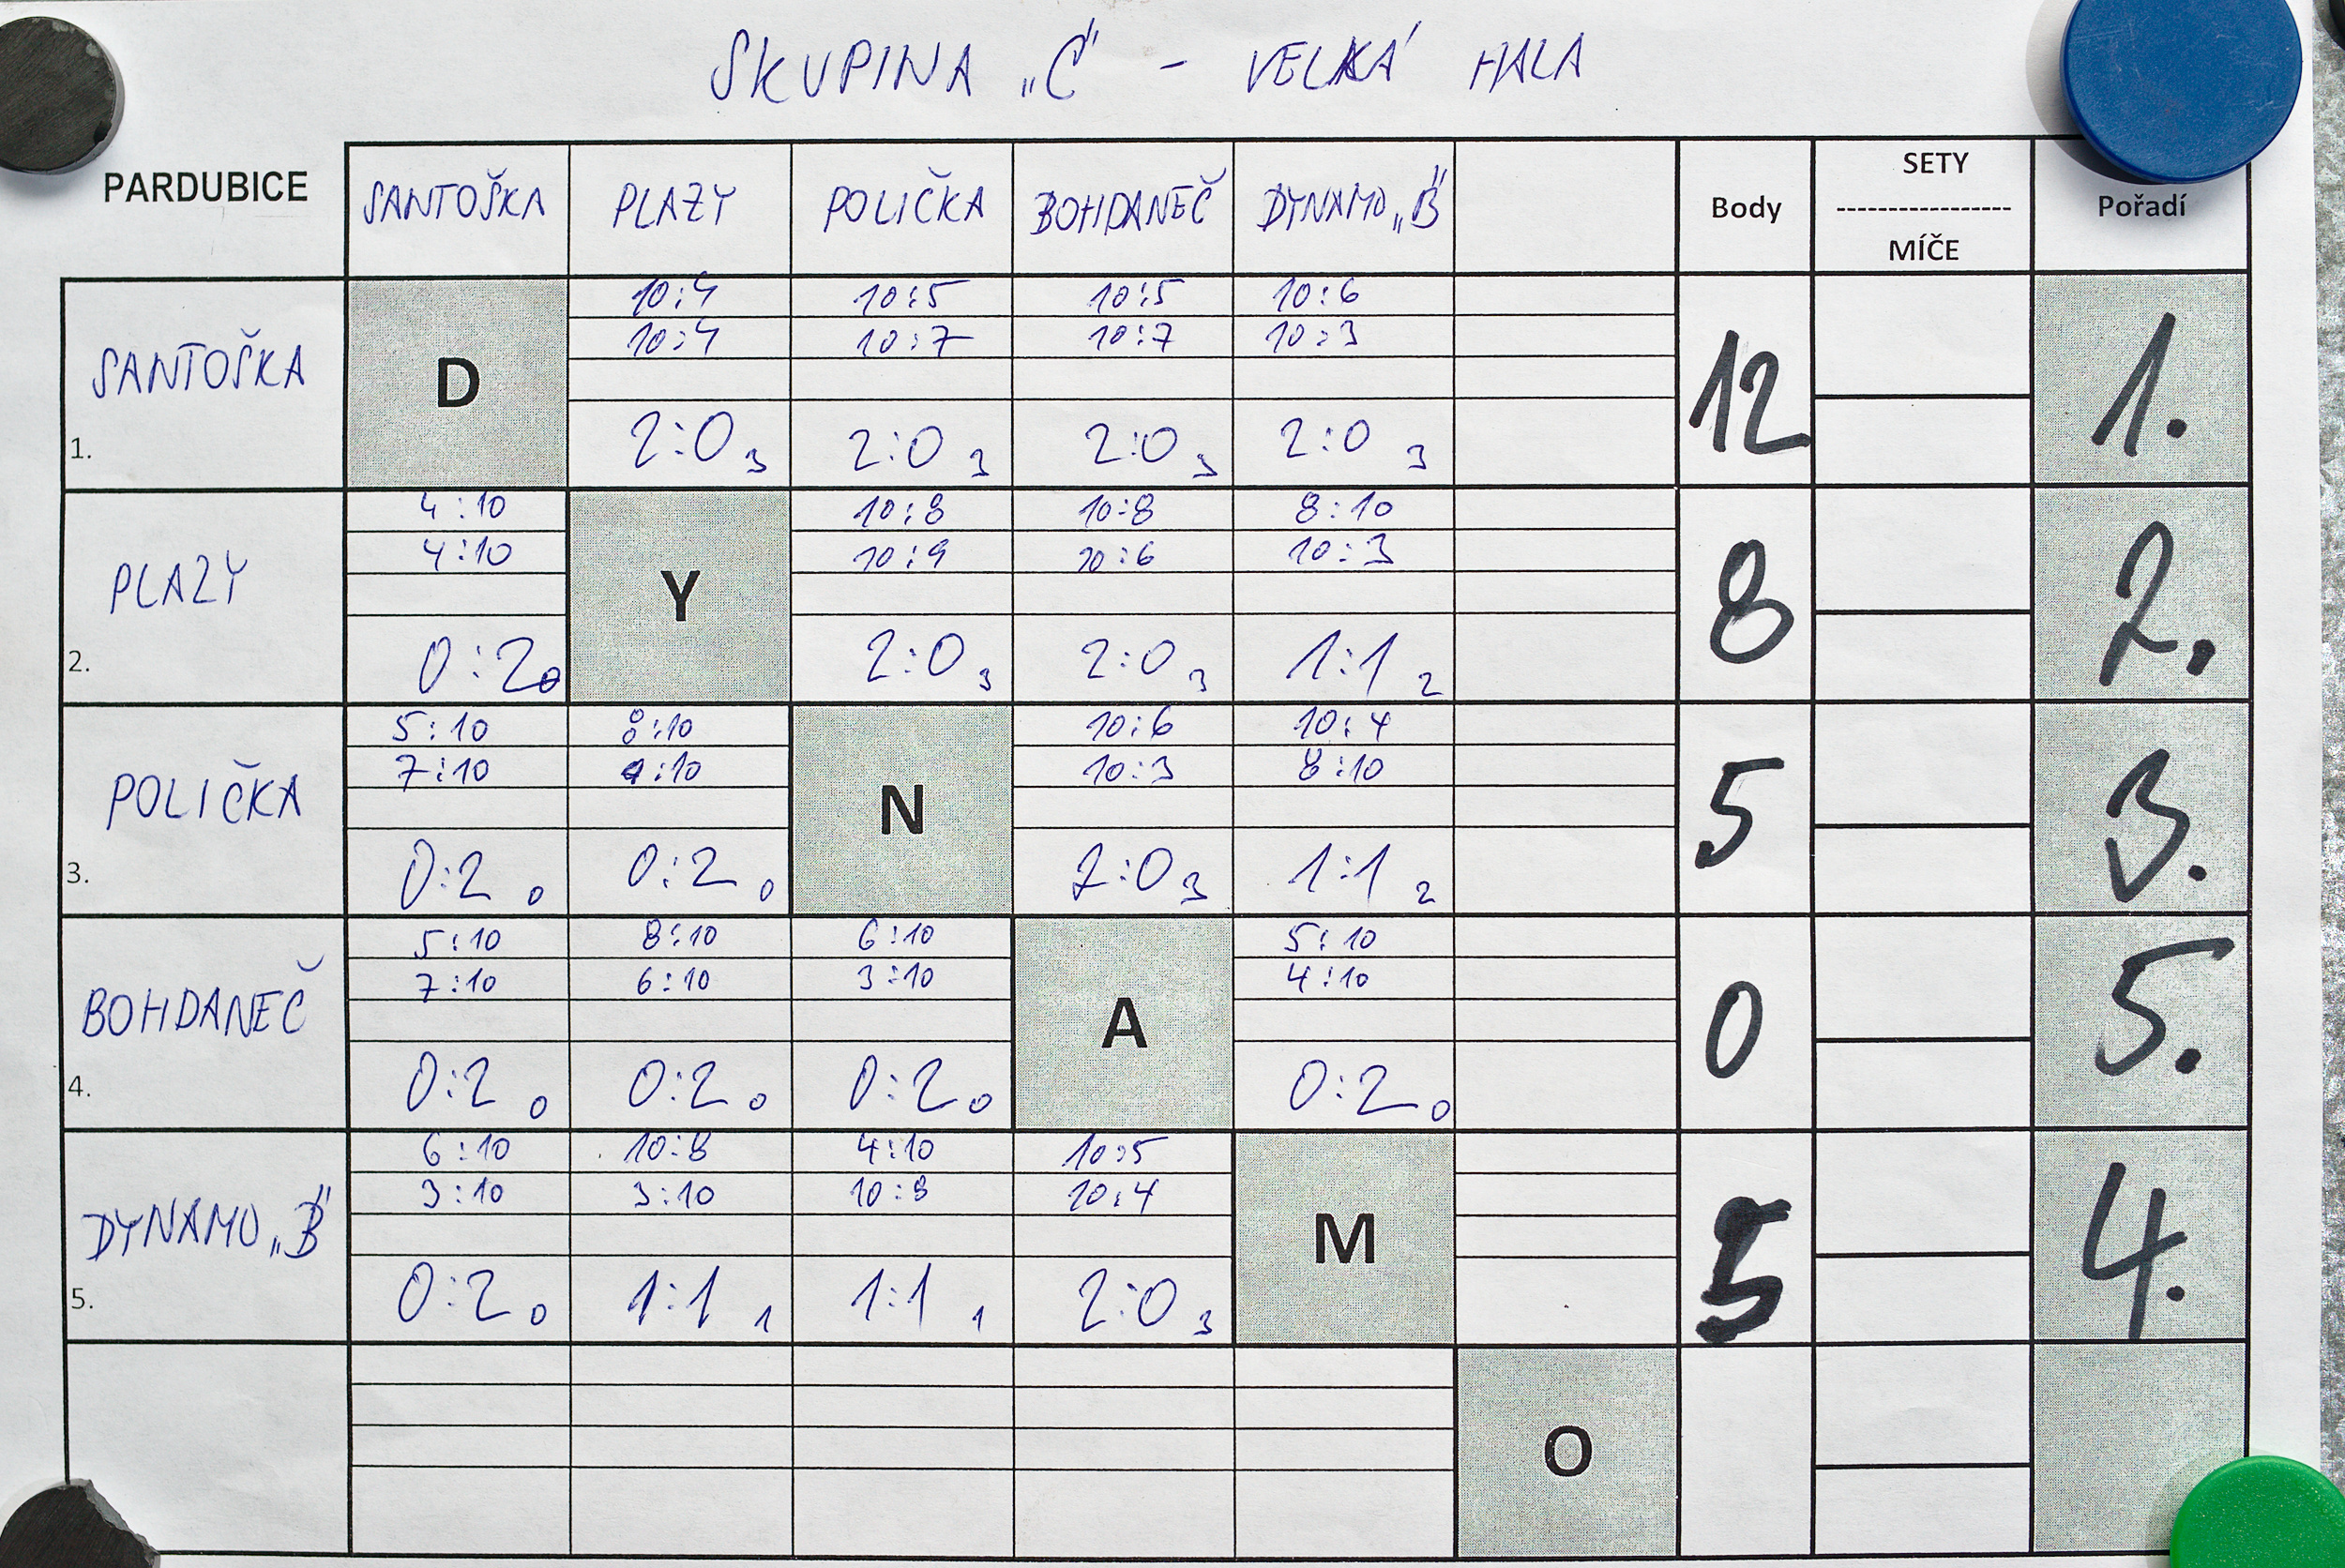 SKUPINA „C" - VELKÁ HALA
PARDUBICE SANTOŠKA PLAZY POLIČKA BOHDANEČ DYNAMO „B" Body SETY Pořadí
----------------
MÍČE
10:4 10:5 10:5 10:6
10:4 10:7 10:7 10:3
SANTOŠKA D 12 1.
1. 2:0 3 2:0 3 2:0 3 2:0 3
4:10 10:8 10:8 8:10
4:10 10:9 10:6 10:3
PLAZY Y 8 2.
2. 0:2 0 2:0 3 2:0 3 1:1 2
5:10 8:10 10:6 10:4
7:10 9:10 10:3 8:10
POLIČKA N 5 3.
3. 0:2 0 0:2 0 2:0 3 1:1 2
5:10 8:10 6:10 5:10
7:10 6:10 3:10 4:10
BOHDANEČ A 0 5.
4. 0:2 0 0:2 0 0:2 0 0:2 0
6:10 10:8 4:10 10:5
3:10 3:10 10:8 10:4
DYNAMO „B" M 5 4.
5. 0:2 0 1:1 1 1:1 1 2:0 3
O